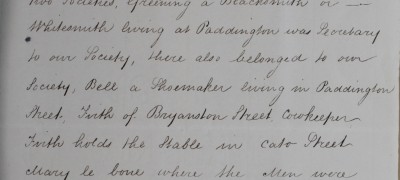 two Societies, Greening a Blacksmith or —
Whitesmith living at Paddington was Secretary
to our Society, there also belonged to our
Society, Bell a Shoemaker living in Paddington
Street, Firth of Bryanston Street, Cowkeeper
Firth holds the Stable in Cato Street
Mary le bone where the Men were